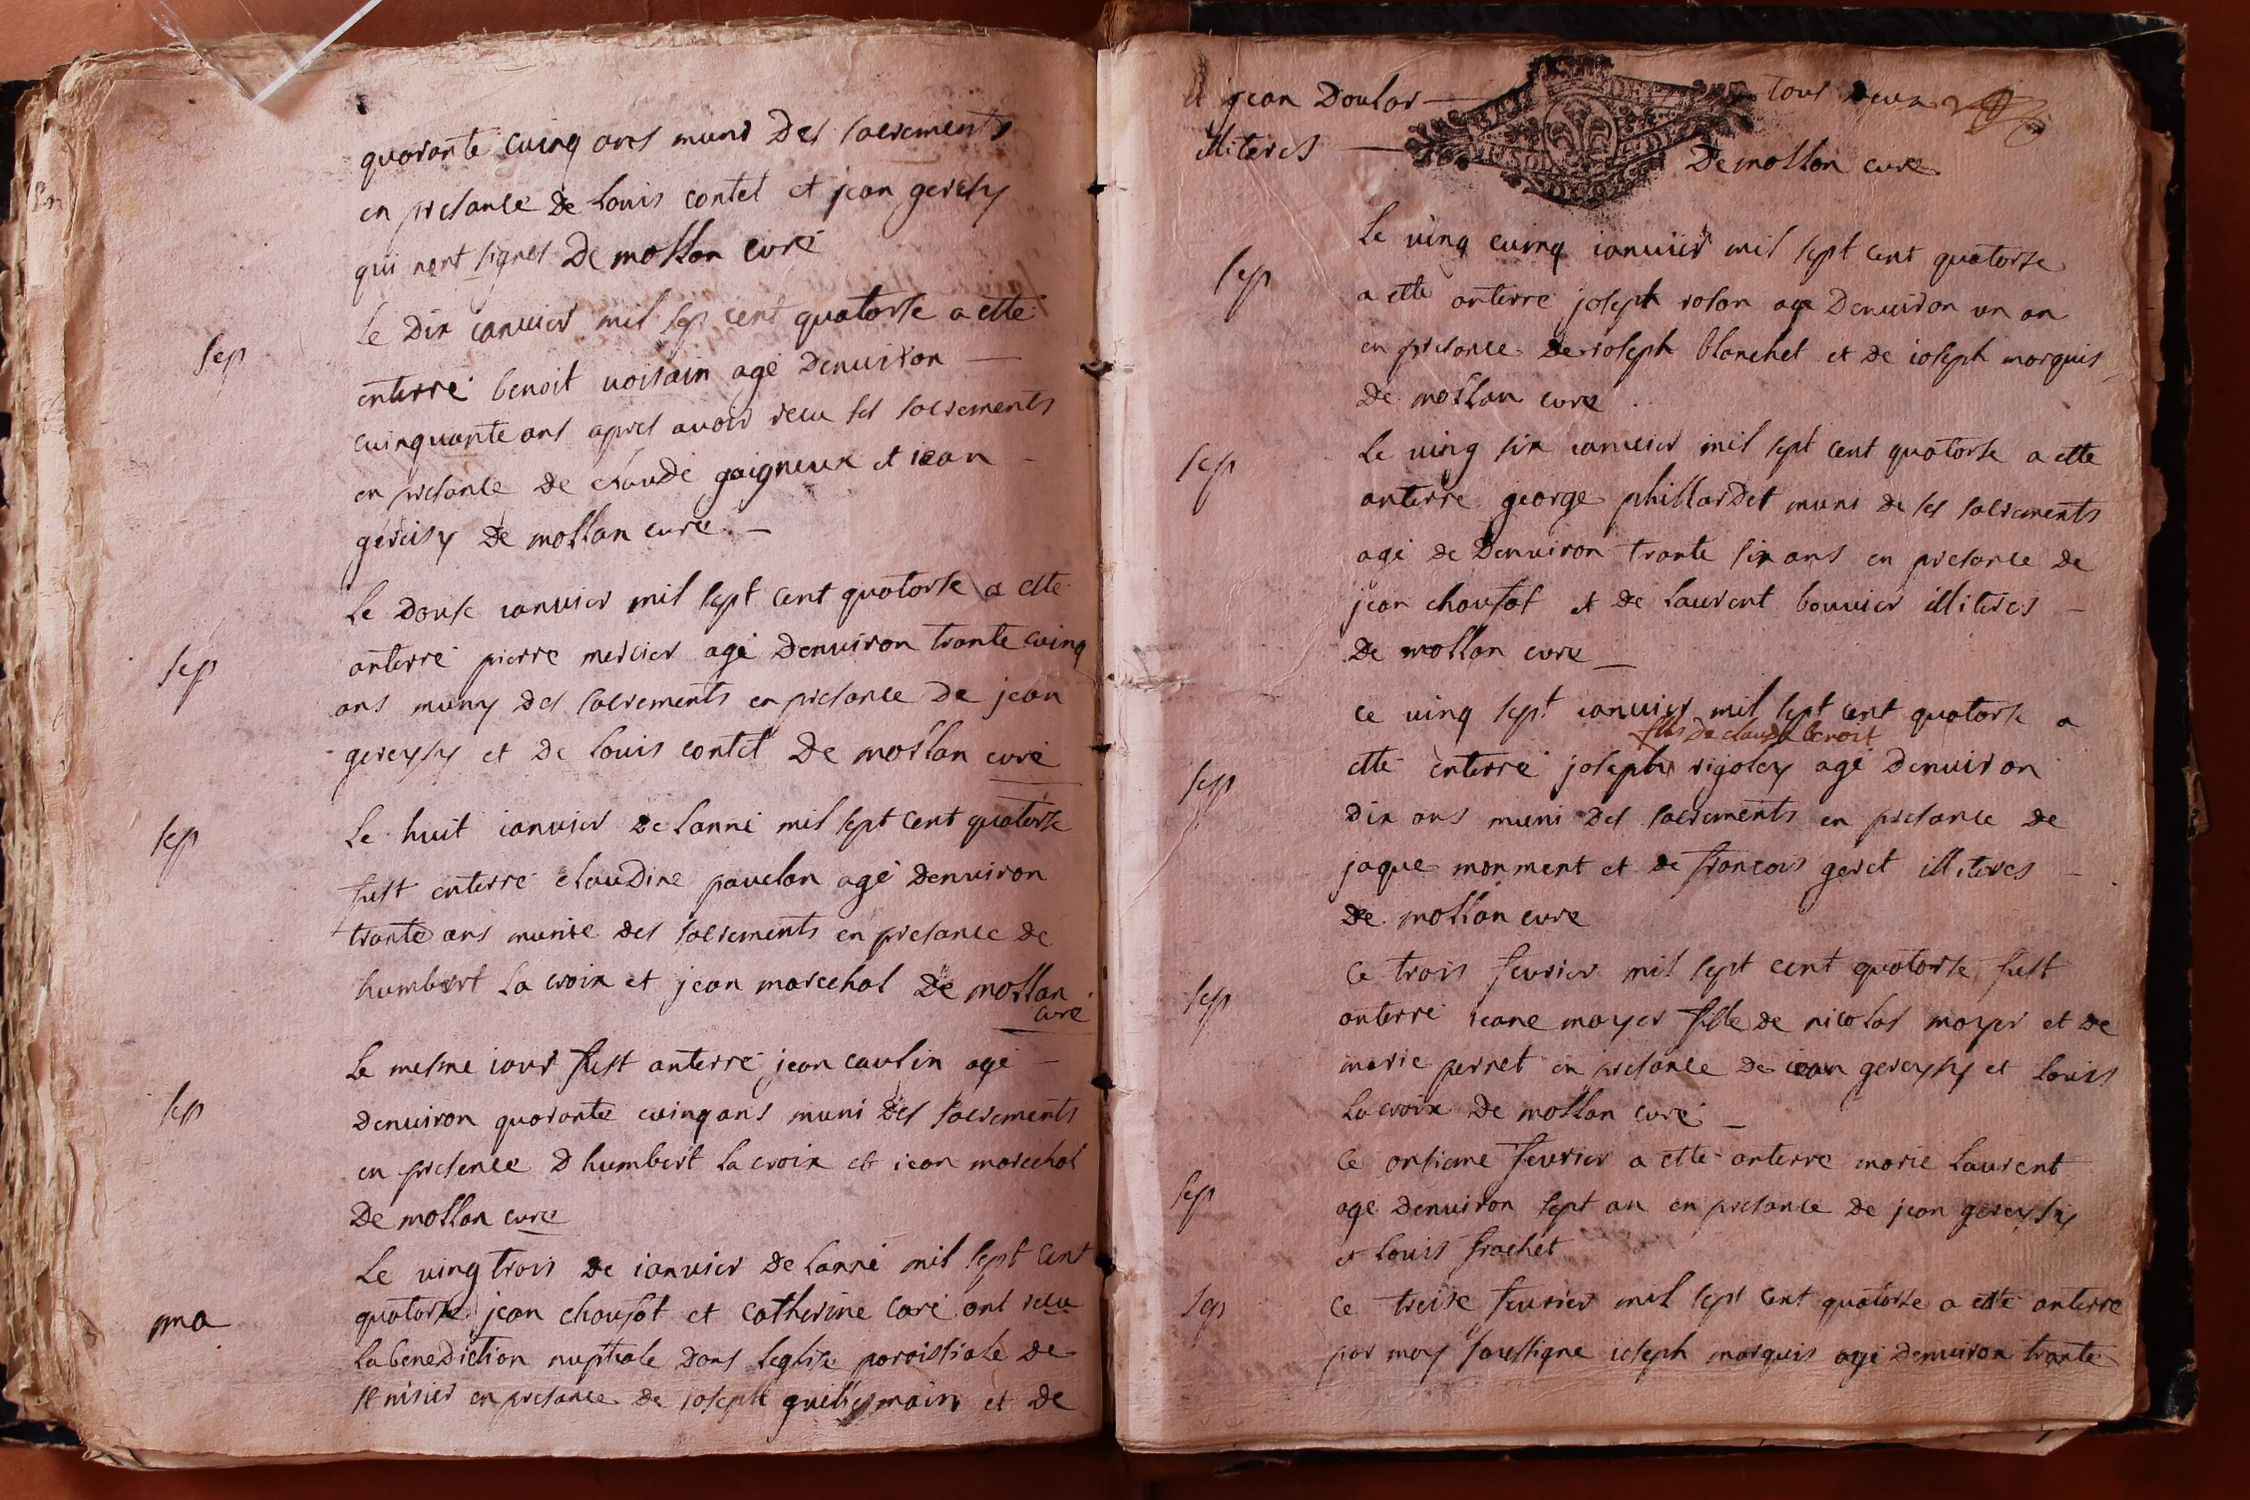 quarante cuinq ans muni des sacrements
en presance de Louis contet et jean geresy
qui nont signes De mollan curé
sep
Le Dix ianuier mil sep cent quatorse a esté
enterre benoit uoisain agé Denuiron
cuinquante ans apres auoir recu ses sacrements
en presance de claude gaigneux et iean
De mollan cure
sep
Le Douse ianuier mil sept cent quatorse a esté
anterré pierre mercier agé Denuiron trante cuinq
ans muny des sacrements en presance De jean
gereysy et De Louis contet De mollan curé
sep
Le huit ianuier De Lanné mil sept cent quatorse
fust enterré claudine pauelon agé Denuiron
trante ans munie des sacrements en presance de
humbert La croix et jean marechal De mollan
curé
sep
Le mesme iour fust anterré jean caulin agé
Denuiron quarante cuinq ans muni Des sacrements
en presence D humbert La croix et iean marechal
De mollan curé
ma
Le uing trois De ianuier De Lanné mil sept cent
quatorse jean chaufot et catherine caré ont recu
La benediction nuptiale Dans Leglise paroissiale De
st nisier en presance De ioseph et De
et jean Doular tous deux
illiteres
De mollan cure
sep
Le uinq cuinq ianuier mil sept cent quatorse
a esté anterré joseph rolon age Denuiron un an
en presance De ioseph blanchet et de ioseph marquis
De mollan cure
sep
Le uing six ianuier mil sept cent quatorse a esté
anterre george phillardet muni de ses sacrements
agé de Denuiron trante six ans en presance de
jean chaufot et de Laurent bouuier illiteres
De mollan cure
sep
Ce uinq sept ianuier mil sept cent quatorse a
fils De claude benoit
esté enterré joseph rigoley agé Denuiron
Dix ans muni Des sacrements en presance de
jaque monment et de francois geret illiteres
De mollan cure
sep
Ce trois feurier mil sept cent quatorse fust
anterré ieane mayer fille de nicolas mayer et De
marie perret en presance De iean gereysy et Louis
La croix De mollan curé
sep
Ce onsieme feurier a esté anterre marie Laurent
age Denuiron sept an en presance De jean gereysy
et Louis frachet
sep
Ce treise feurier mil sept cent quatorse a esté anterre
par moy soussigne ioseph marquis agé Denuiron trante